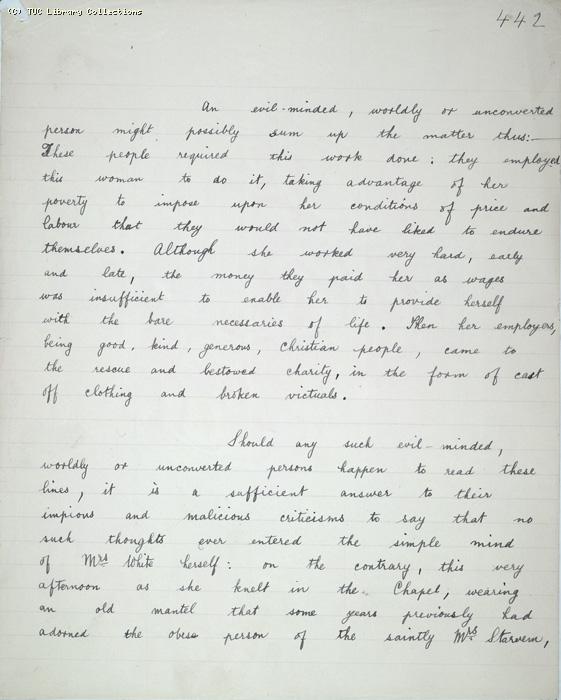 (C) TUC Library Collections
442
An evil-minded, worldly or unconverted
person might possibly sum up the matter thus:—
These people required this work done: they employed
this woman to do it, taking advantage of her
poverty to impose upon her conditions of price and
labour that they would not have liked to endure
themselves. Although she worked very hard, early
and late, the money they paid her as wages
was insufficient to enable her to provide herself
with the bare necessaries of life. Then her employers,
being good, kind, generous, Christian people, came to
the rescue and bestowed charity, in the form of cast
off clothing and broken victuals.
Should any such evil-minded,
worldly or unconverted persons happen to read these
lines, it is a sufficient answer to their
impious and malicious criticisms to say that no
such thoughts ever entered the simple mind
of Mrs White herself: on the contrary, this very
afternoon as she knelt in the Chapel, wearing
an old mantel that some years previously had
adorned the obese person of the saintly Mrs Starvem,